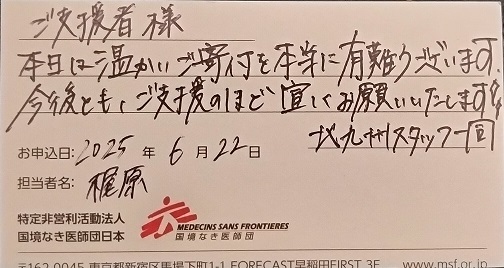 ご支援者 様
本日は温かいご寄付を本当に有難うございます。
今後とも、ご支援のほど宜しくお願いいたします。
北九州スタッフ一同
お申込日: 2025 年 6 月 22 日
担当者名: 梶原
特定非営利活動法人
国境なき医師団日本
MEDECINS SANS FRONTIERES
国境なき医師団
〒162-0045 東京都新宿区馬場下町1-1 FORECAST早稲田FIRST 3F www.msf.or.jp